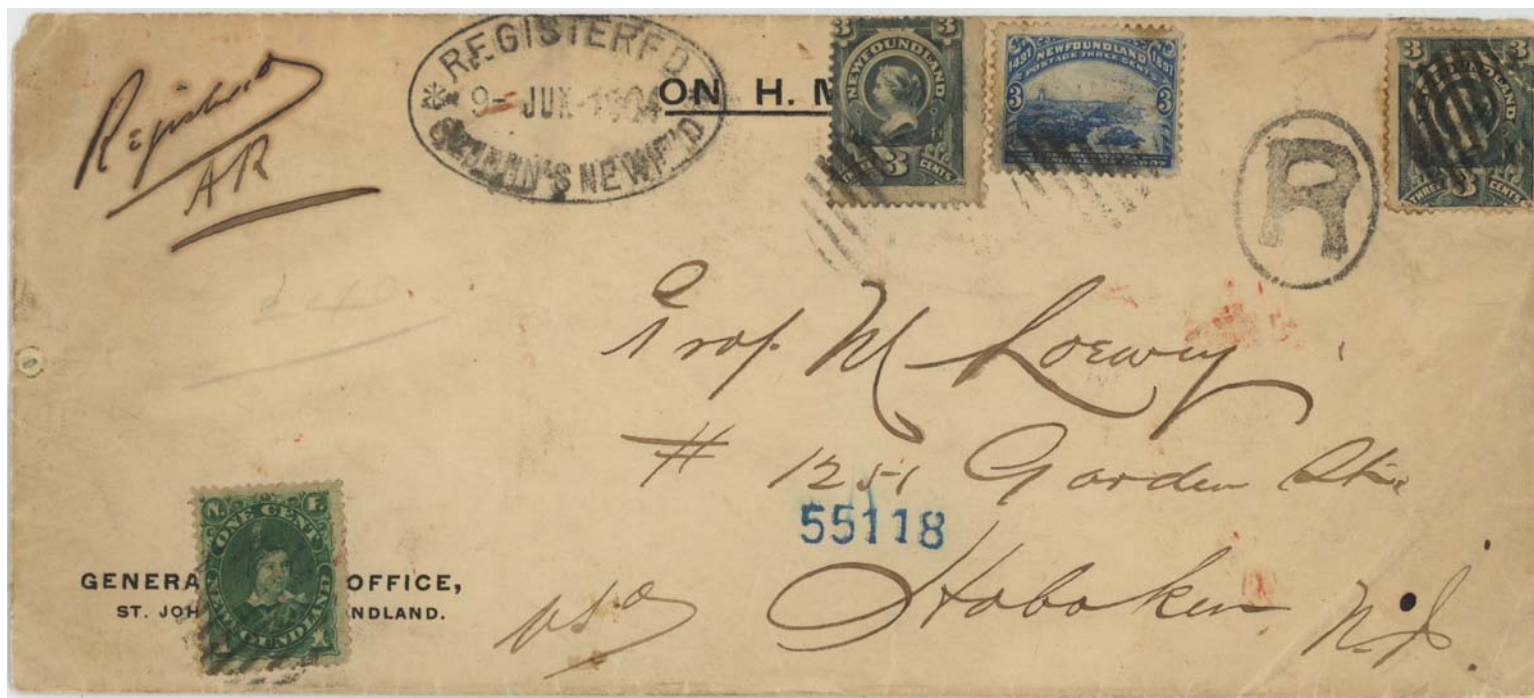 Registered
AR
REGISTERED
9- JUN 1904
ST. JOHN'S NEWF'D
ON H. M
3 3
NEWFOUNDLAND
3
CENTS
1497 NEWFOUNDLAND 1897
POSTAGE THREE CENTS
3 3
3 3
THREE 3 CENTS
R
Prof. M Loewy
# 1251 Garden Str.
55118
Hoboken, N.J.
USA
N. F.
ONE CENT
NEWFOUNDLAND
GENERA OFFICE,
ST. JOH NDLAND.